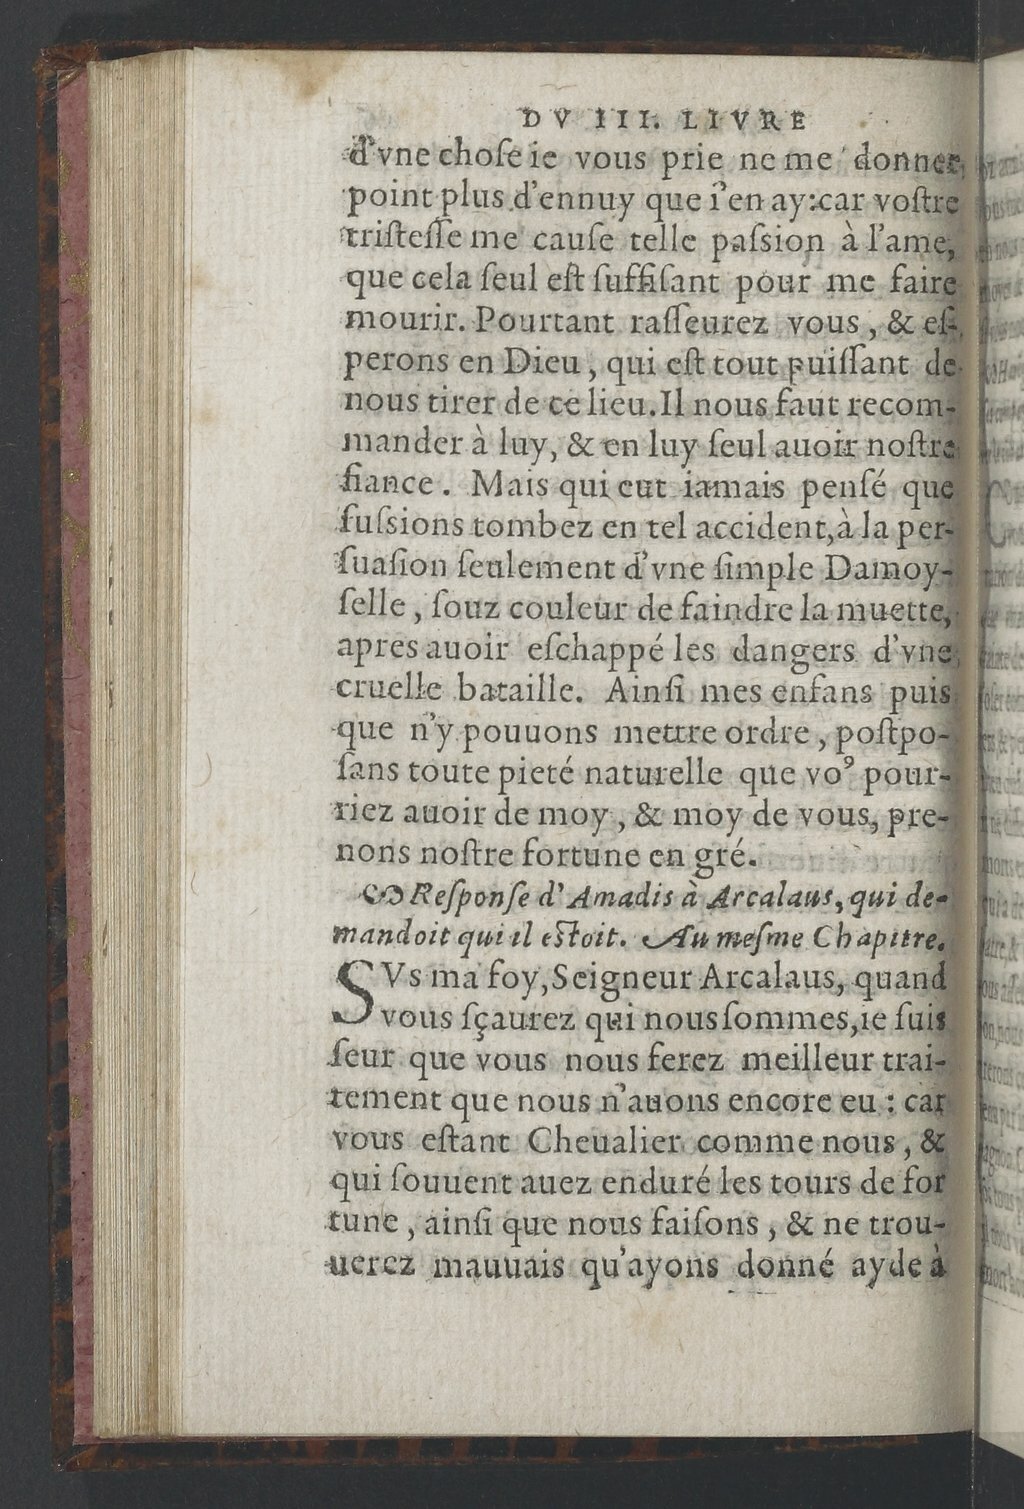 DV III. LIVRE
d'vne choſe ie vous prie ne me donner
point plus d'ennuy que i'en ay:car voſtre
triſteſſe me cauſe telle paſsion à l'ame,
que cela ſeul eſt ſuffiſant pour me faire
mourir. Pourtant raſſeurez vous, & eſ-
perons en Dieu, qui eſt tout puiſſant de
nous tirer de ce lieu. Il nous faut recom-
mander à luy, & en luy ſeul auoir noſtre
fiance. Mais qui eut iamais penſé que
fuſsions tombez en tel accident, à la per-
ſuaſion ſeulement d'vne ſimple Damoy-
ſelle, ſouz couleur de faindre la muette,
apres auoir eſchappé les dangers d'vne
cruelle bataille. Ainſi mes enfans puis
que n'y pouuons mettre ordre, poſtpo-
ſans toute pieté naturelle que voꝰ pour-
riez auoir de moy, & moy de vous, pre-
nons noſtre fortune en gré.
Reſponſe d'Amadis à Arcalaus, qui de-
mandoit qui il eſtoit. Au meſme Chapitre.
SVs ma foy, Seigneur Arcalaus, quand
vous ſçaurez qui nous ſommes, ie ſuis
ſeur que vous nous ferez meilleur trai-
tement que nous n'auons encore eu : car
vous eſtant Cheualier comme nous, &
qui ſouuent auez enduré les tours de for
tune, ainſi que nous faiſons, & ne trou-
uerez mauuais qu'ayons donné ayde à